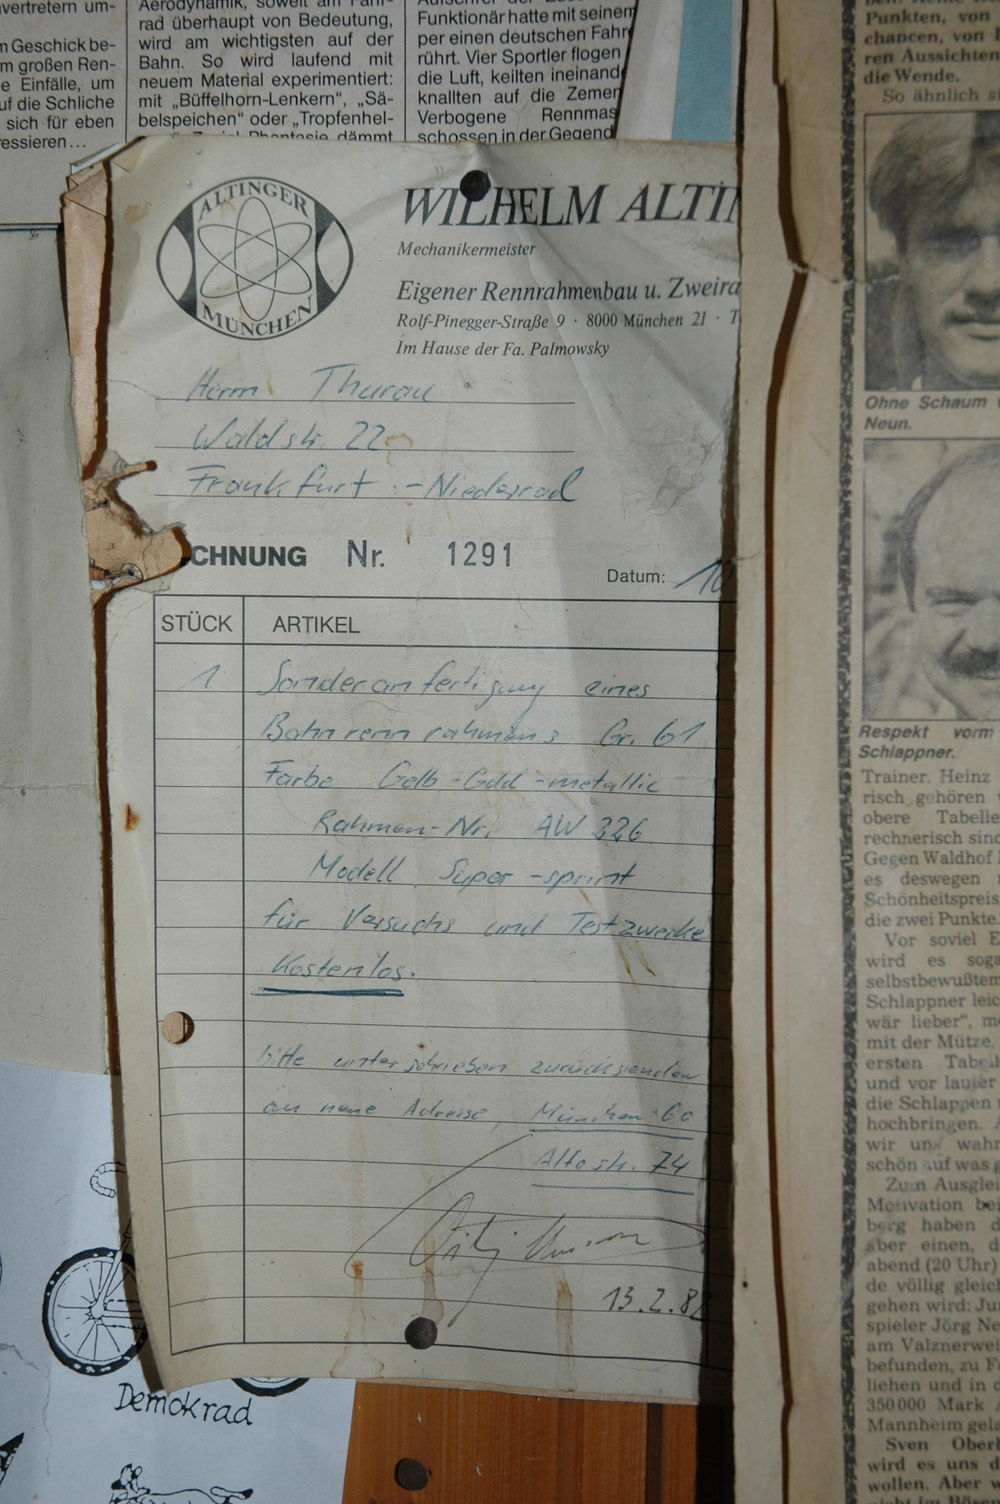 vertretern um-
m Geschick be-
m großen Ren-
e Einfälle, um
uf die Schliche
sich für eben
essieren...
Aerodynamik, soweit am Fahr-
rad überhaupt von Bedeutung,
wird am wichtigsten auf der
Bahn. So wird laufend mit
neuem Material experimentiert:
mit „Büffelhorn-Lenkern", „Sä-
belspeichen" oder „Tropfenhel-
Phantasie dämmt
Funktionär hatte mit seinem
per einen deutschen Fahr
rührt. Vier Sportler flogen
die Luft, keilten ineinand
knallten auf die Zemen
Verbogene Rennmas
schossen in der Gegend
ALTINGER
MÜNCHEN
WILHELM ALTIN
Mechanikermeister
Eigener Rennrahmenbau u. Zweira
Rolf-Pinegger-Straße 9 · 8000 München 21 · T
Im Hause der Fa. Palmowsky
Herrn Thurau
Waldstr. 22
Frankfurt - Niederrad
CHNUNG Nr. 1291
Datum: 10
STÜCK ARTIKEL
1 Sonderanfertigung eines
Bahnrennrahmens Gr. 61
Farbe Gelb-Gold-metallic
Rahmen-Nr. AW 226
Modell Super-sprint
für Versuchs und Testzwecke
Kostenlos.
bitte unterschrieben zurücksenden
an neue Adresse, München 60
Altostr. 74
13.2.82
Demokrad
Punkten, von
chancen, von
ren Aussichten
die Wende.
So ähnlich
Ohne Schaum
Neun.
Respekt vorm
Schlappner.
Trainer. Heinz
risch gehören
obere Tabelle
rechnerisch sind
Gegen Waldhof
es deswegen
Schönheitspreis
die zwei Punkte.
Vor soviel
wird es soga
selbstbewußtem
Schlappner leic
wär lieber", me
mit der Mütze,
ersten Tabel
und vor lauter
die Schlappen
hochbringen.
wir uns wahr
schön auf was
Zum Ausglei
Motivation bei
berg haben d
aber einen, d
abend (20 Uhr)
de völlig gleich
gehen wird: Jun
spieler Jörg Ne
am Valznerwei
befunden, zu F
liehen und in d
350 000 Mark
Mannheim gela
Sven Oberh
wird es uns d
wollen. Aber w